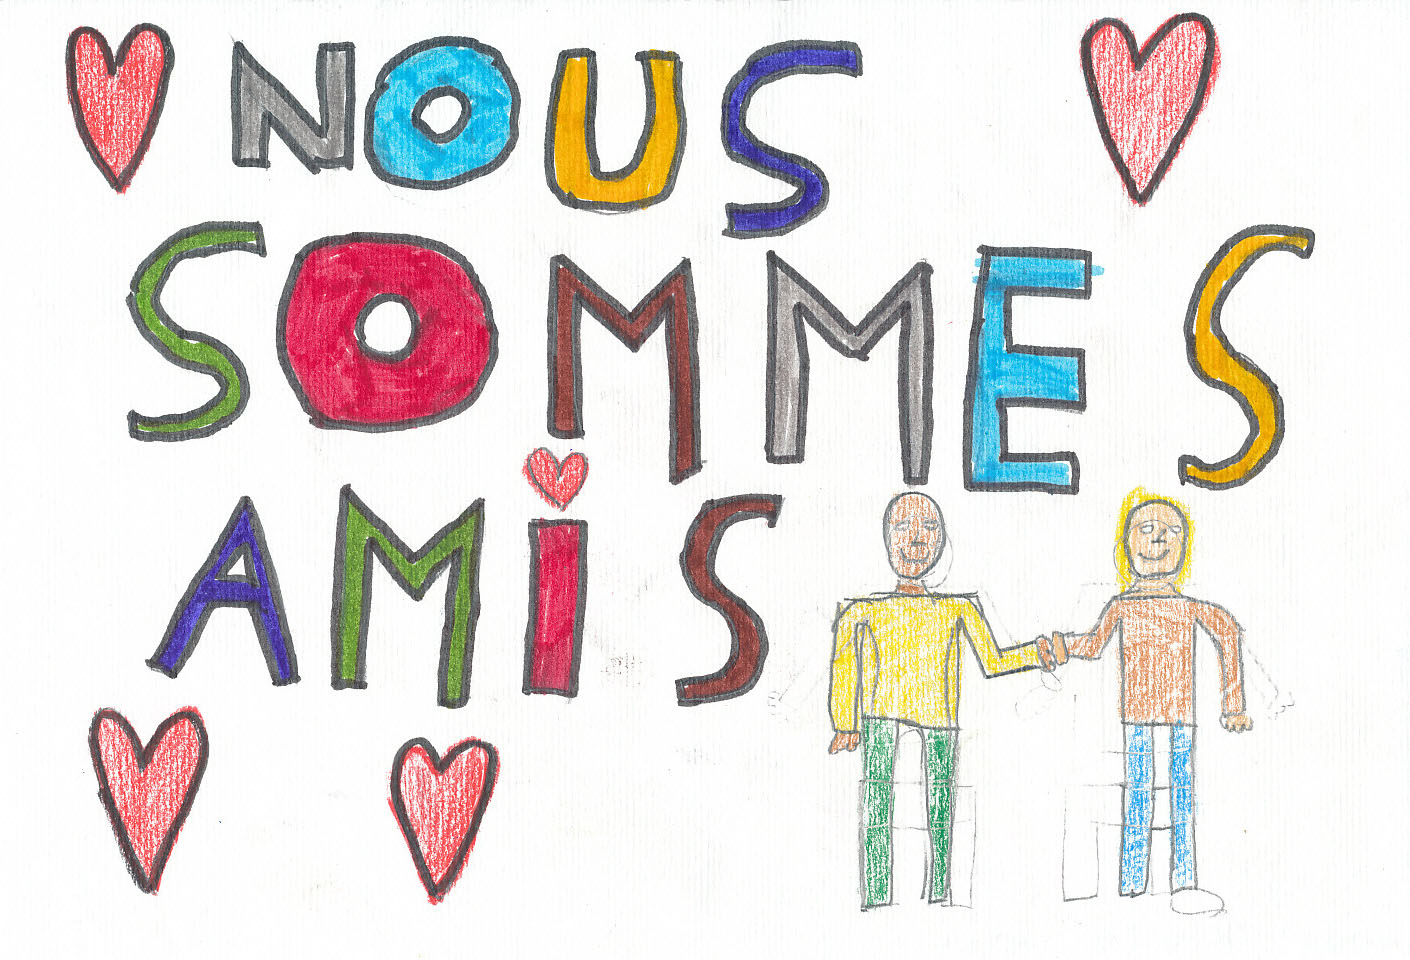 NOUS
SOMMES
AMiS